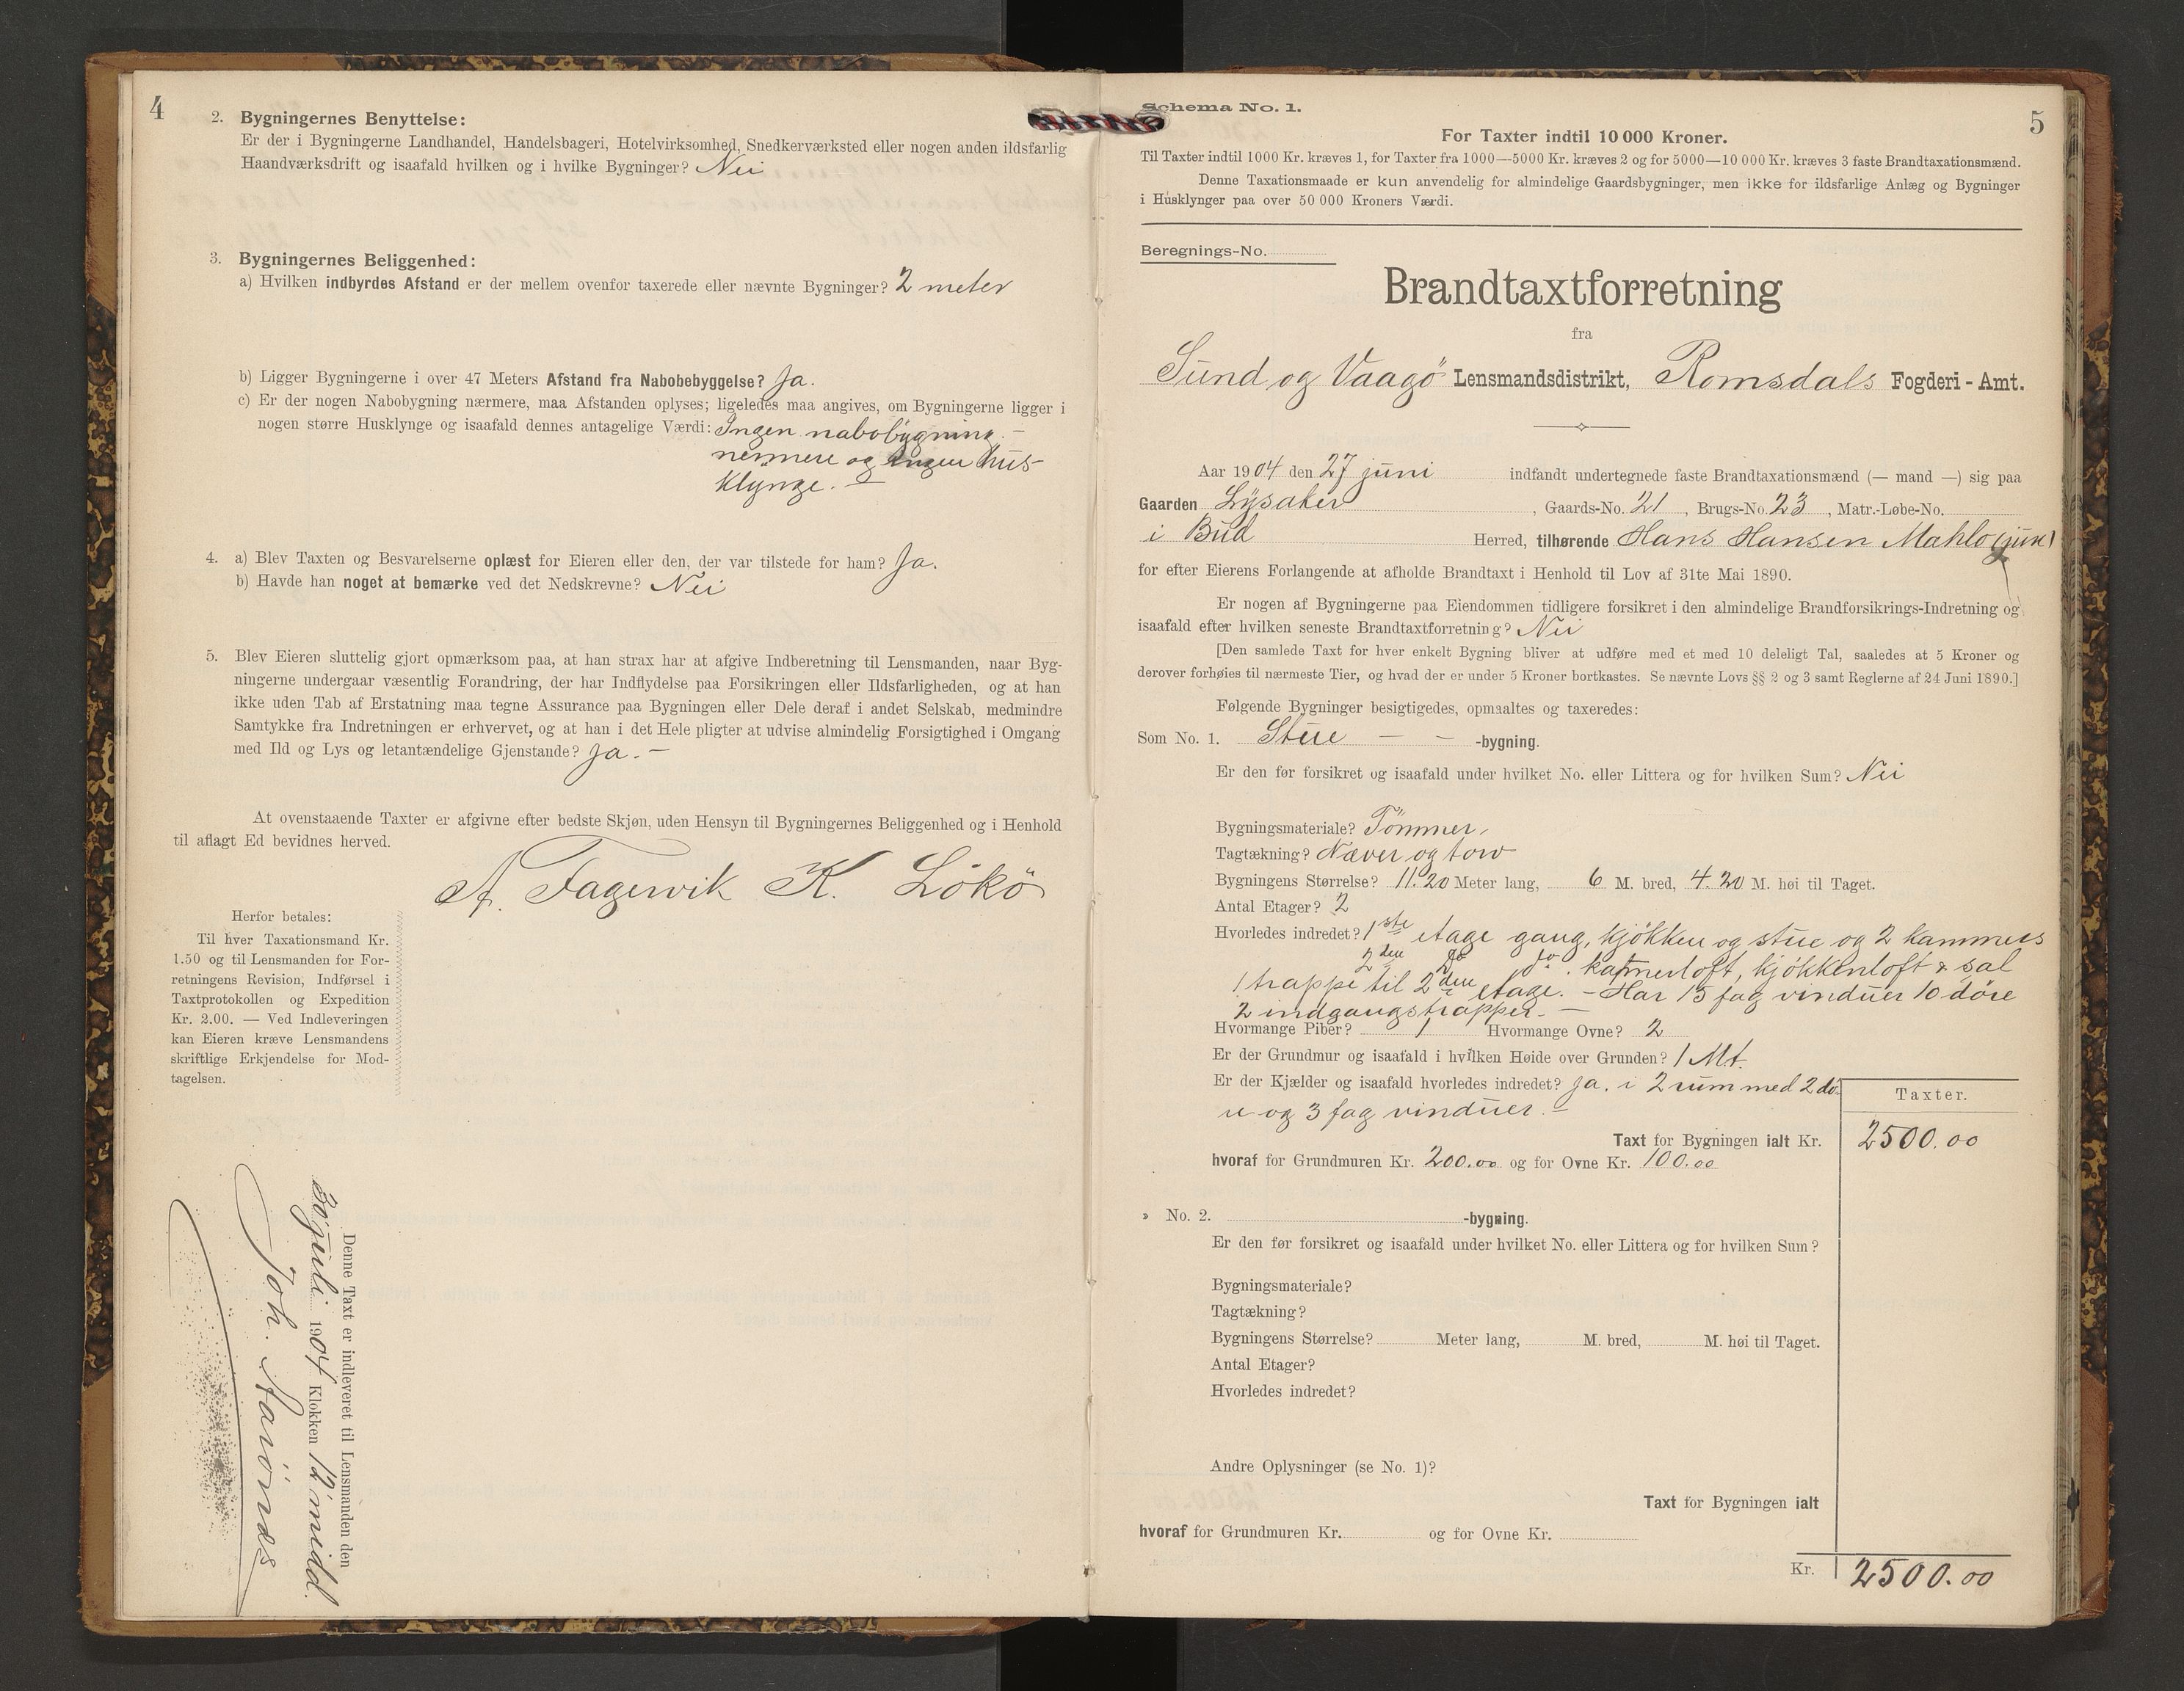 4
2. Bygningernes Benyttelse:
Er der i Bygningerne Landhandel, Handelsbageri, Hotelvirksomhed, Snedkerværksted eller nogen anden ildsfarlig
Haandværksdrift og isaafald hvilken og i hvilke Bygninger? Nei
3. Bygningernes Beliggenhed:
a) Hvilken indbyrdes Afstand er der mellem ovenfor taxerede eller nævnte Bygninger? 2 meter
b) Ligger Bygningerne i over 47 Meters Afstand fra Nabobebyggelse? Ja.
c) Er der nogen Nabobygning nærmere, maa Afstanden oplyses; ligeledes maa angives, om Bygningerne ligger i
nogen større Husklynge og isaafald dennes antagelige Værdi: Ingen nabobygning –
nermere og ingen hus-
klynge. –
4. a) Blev Taxten og Besvarelserne oplæst for Eieren eller den, der var tilstede for ham? Ja.
b) Havde han noget at bemærke ved det Nedskrevne? Nei
5. Blev Eieren sluttelig gjort opmærksom paa, at han strax har at afgive Indberetning til Lensmanden, naar Byg-
ningerne undergaar væsentlig Forandring, der har Indflydelse paa Forsikringen eller Ildsfarligheden, og at han
ikke uden Tab af Erstatning maa tegne Assurance paa Bygningen eller Dele deraf i andet Selskab, medmindre
Samtykke fra Indretningen er erhvervet, og at han i det Hele pligter at udvise almindelig Forsigtighed i Omgang
med Ild og Lys og letantændelige Gjenstande? Ja. –
At ovenstaaende Taxter er afgivne efter bedste Skjøn, uden Hensyn til Bygningernes Beliggenhed og i Henhold
til aflagt Ed bevidnes herved.
A. Fagervik K. Lökö
Herfor betales:
Til hver Taxationsmand Kr.
1.50 og til Lensmanden for For-
retningens Revision, Indførsel i
Taxtprotokollen og Expedition
Kr. 2.00. — Ved Indleveringen
kan Eieren kræve Lensmandens
skriftlige Erkjendelse for Mod-
tagelsen.
Denne Taxt er indleveret til Lensmanden den
30 juli 1904 Klokken 12 midd.
Joh.
5
Schema No. 1.
For Taxter indtil 10 000 Kroner.
Til Taxter indtil 1000 Kr. kræves 1, for Taxter fra 1000—5000 Kr. kræves 2 og for 5000—10 000 Kr. kræves 3 faste Brandtaxationsmænd.
Denne Taxationsmaade er kun anvendelig for almindelige Gaardsbygninger, men ikke for ildsfarlige Anlæg og Bygninger
i Husklynger paa over 50 000 Kroners Værdi.
Beregnings-No.
Brandtaxtforretning
fra
Sund og Vaagö Lensmandsdistrikt, Romsdals Fogderi - Amt.
Aar 1904 den 27 juni indfandt undertegnede faste Brandtaxationsmænd (— mand —) sig paa
Gaarden Lysaker, Gaards-No. 21, Brugs-No. 23, Matr.-Løbe-No.
i Bud Herred, tilhørende Hans Hansen Mahlo (jun)
for efter Eierens Forlangende at afholde Brandtaxt i Henhold til Lov af 31te Mai 1890.
Er nogen af Bygningerne paa Eiendommen tidligere forsikret i den almindelige Brandforsikrings-Indretning og
isaafald efter hvilken seneste Brandtaxtforretning? Nei
[Den samlede Taxt for hver enkelt Bygning bliver at udføre med et med 10 deleligt Tal, saaledes at 5 Kroner og
derover forhøies til nærmeste Tier, og hvad der er under 5 Kroner bortkastes. Se nævnte Lovs §§ 2 og 3 samt Reglerne af 24 Juni 1890.]
Følgende Bygninger besigtigedes, opmaaltes og taxeredes:
Som No. 1. Stue – – -bygning.
Er den før forsikret og isaafald under hvilket No. eller Littera og for hvilken Sum? Nei
Bygningsmateriale? Tömmer,
Tagtækning? Næver og torv
Bygningens Størrelse? 11.20 Meter lang, 6 M. bred, 4.20 M. høi til Taget.
Antal Etager? 2
Hvorledes indredet? 1ste etage gang, kjökken og stue og 2 kammers
2den do do. kammerloft, kjökkenloft & sal
1 trappe til 2den etage. – Har 15 fag vinduer 10 döre
2 indgangstrapper. –
Hvormange Piber? 1 Hvormange Ovne? 2
Er der Grundmur og isaafald i hvilken Høide over Grunden? 1 Mt.
Er der Kjælder og isaafald hvorledes indredet? Ja. i 2 rum med 2 dö-
re og 3 fag vinduer. –
Taxter.
Taxt for Bygningen ialt Kr. 2500.00
hvoraf for Grundmuren Kr. 200.00 og for Ovne Kr. 100.00
» No. 2. -bygning.
Er den før forsikret og isaafald under hvilket No. eller Littera og for hvilken Sum?
Bygningsmateriale?
Tagtækning?
Bygningens Størrelse? Meter lang, M. bred, M. høi til Taget.
Antal Etager?
Hvorledes indredet?
Andre Oplysninger (se No. 1)?
Taxt for Bygningen ialt
hvoraf for Grundmuren Kr. og for Ovne Kr.
Kr. 2500.00